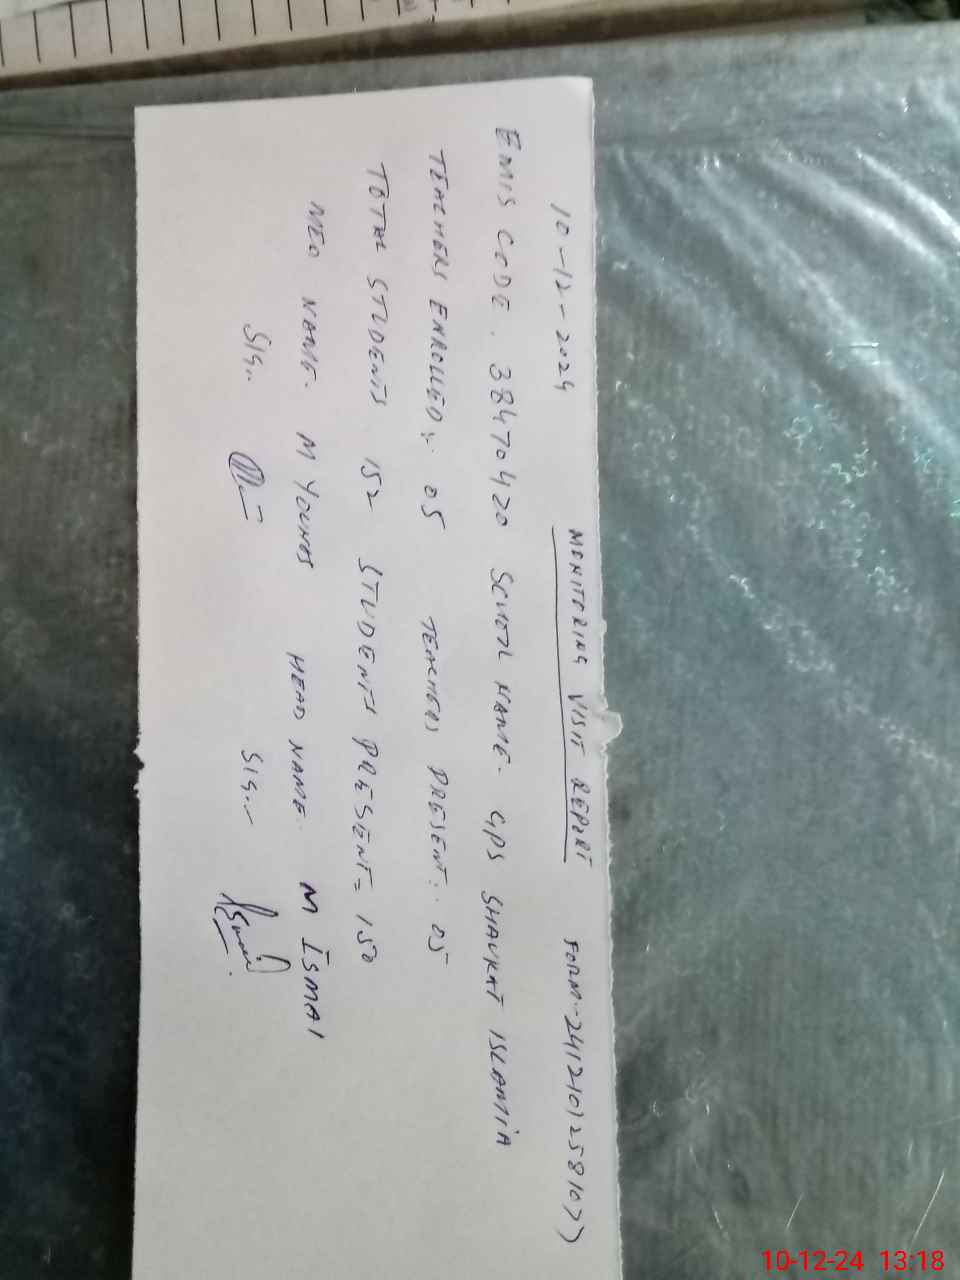 10-12-2024 MONITORING VISIT REPORT FORM:-
EMIS CODE. 38470420 SCHOOL NAME. GPS SHAUKAT ISLAMIA
TEACHERS ENROLLED:- 05 TEACHERS PRESENT:. 05
TOTAL STUDENTS 152 STUDENTS PRESENT= 150
MEO NAME. M YOUNAS HEAD NAME. M ISMAI
SIG.. SIG..
10-12-24 13:18